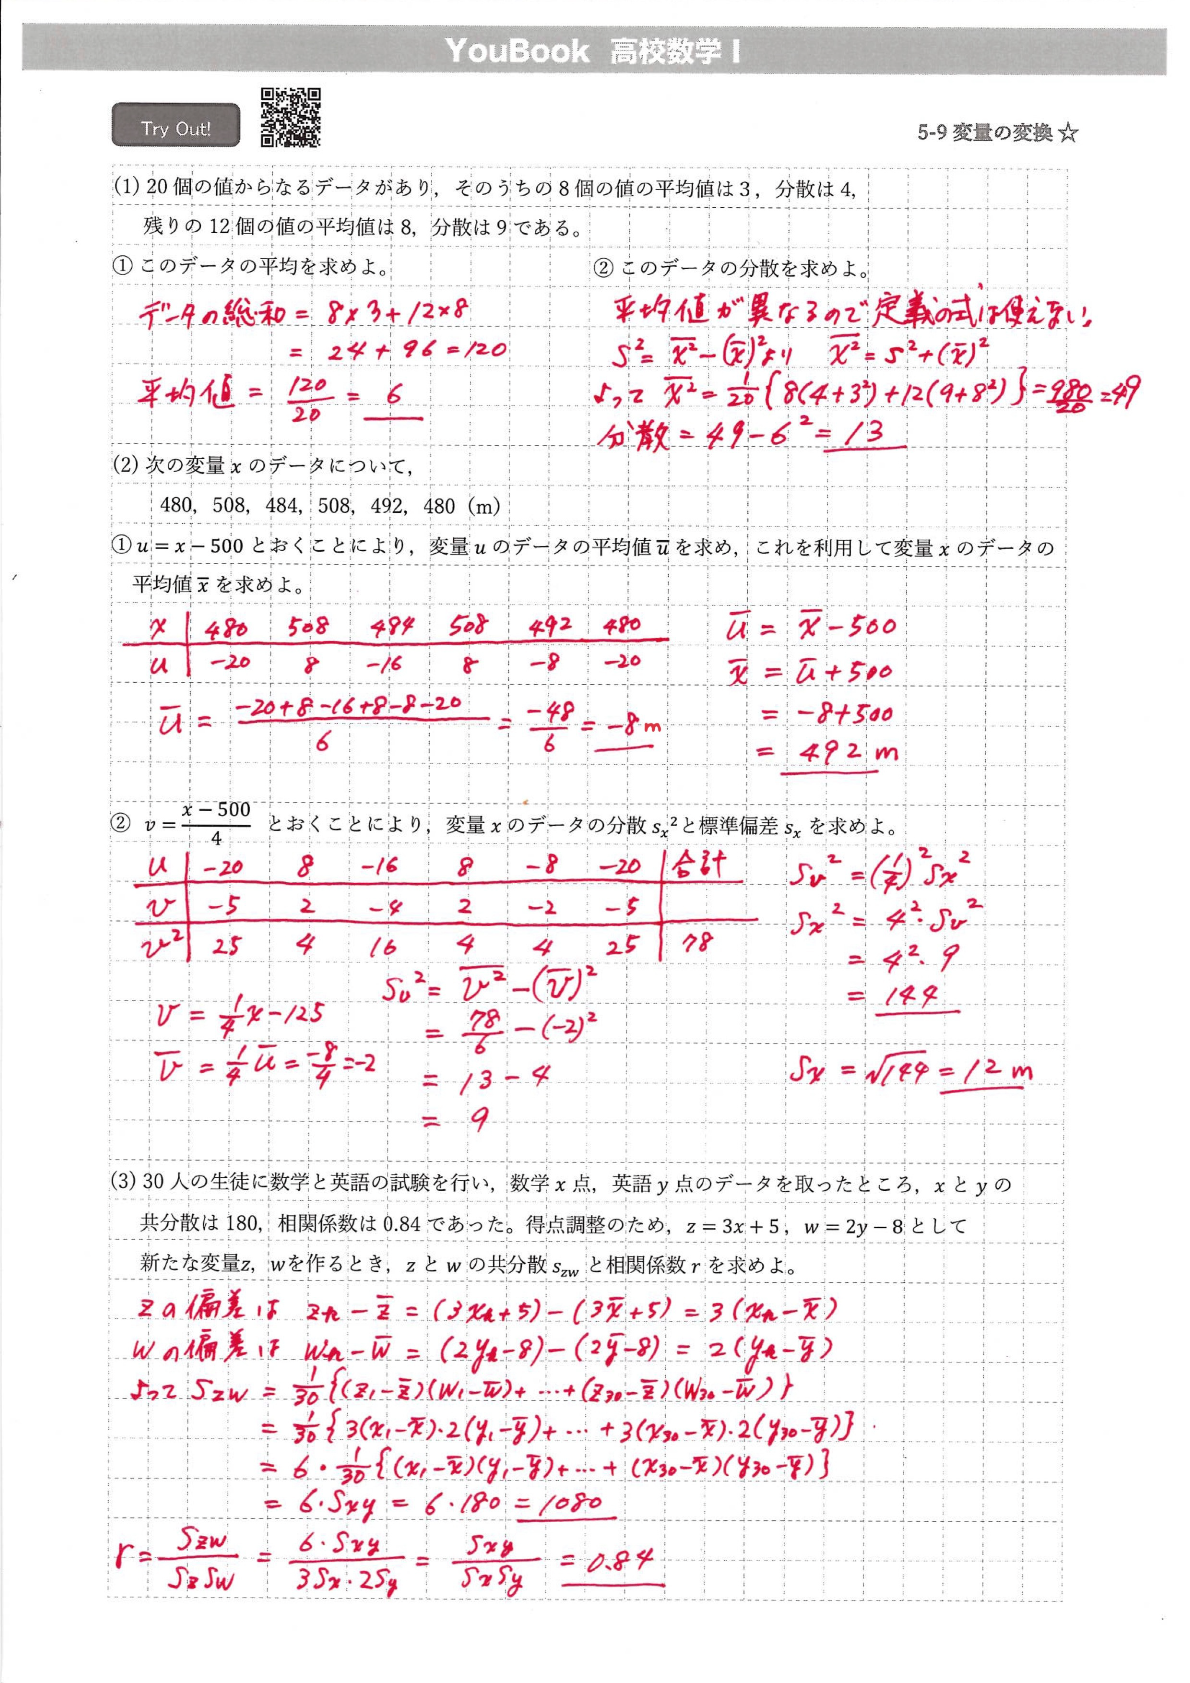 YouBook 高校数学 I
Try Out!
5-9 変量の変換 ☆
(1) 20 個の値からなるデータがあり，そのうちの 8 個の値の平均値は 3，分散は 4，
残りの 12 個の値の平均値は 8，分散は 9 である。
① このデータの平均を求めよ。
② このデータの分散を求めよ。
データの総和 = 8×3+12×8
= 24+96=120
平均値 = 120/20 = 6
平均値が異なるので定義の式は使えない。
S² = x̄² - (x̄)² より x̄² = S² + (x̄)²
よって x̄² = 1/20 {8(4+3²)+12(9+8²)} = 980/20 = 49
分散 = 49 - 6² = 13
(2) 次の変量 x のデータについて，
480，508，484，508，492，480（m）
① u = x − 500 とおくことにより，変量 u のデータの平均値 ū を求め，これを利用して変量 x のデータの
平均値 x̄ を求めよ。
x 480 508 484 508 492 480
u -20 8 -16 8 -8 -20
ū = (-20+8-16+8-8-20)/6 = -48/6 = -8 m
ū = x̄ - 500
x̄ = ū + 500
= -8+500
= 492 m
② v = (x − 500)/4 とおくことにより，変量 x のデータの分散 sₓ² と標準偏差 sₓ を求めよ。
u -20 8 -16 8 -8 -20 合計
v -5 2 -4 2 -2 -5
v² 25 4 16 4 4 25 78
v = 1/4 x - 125
v̄ = 1/4 ū = -8/4 = -2
Sv² = v̄² - (v̄)²
= 78/6 - (-2)²
= 13 - 4
= 9
Sv² = (1/4)² Sx²
Sx² = 4²・Sv²
= 4²・9
= 144
Sx = √144 = 12 m
(3) 30 人の生徒に数学と英語の試験を行い，数学 x 点，英語 y 点のデータを取ったところ，x と y の
共分散は 180，相関係数は 0.84 であった。得点調整のため，z = 3x + 5，w = 2y − 8 として
新たな変量z，wを作るとき，z と w の共分散 s_zw と相関係数 r を求めよ。
zの偏差は zn - z̄ = (3xn+5) - (3x̄+5) = 3(xn - x̄)
wの偏差は wn - w̄ = (2yn-8) - (2ȳ-8) = 2(yn - ȳ)
よって Szw = 1/30 {(z₁-z̄)(w₁-w̄)+ … +(z₃₀-z̄)(w₃₀-w̄)}
= 1/30 {3(x₁-x̄)・2(y₁-ȳ)+ … +3(x₃₀-x̄)・2(y₃₀-ȳ)}
= 6・1/30 {(x₁-x̄)(y₁-ȳ)+ … +(x₃₀-x̄)(y₃₀-ȳ)}
= 6・Sxy = 6・180 = 1080
r = Szw/(Sz Sw) = 6・Sxy/(3Sx・2Sy) = Sxy/(Sx Sy) = 0.84